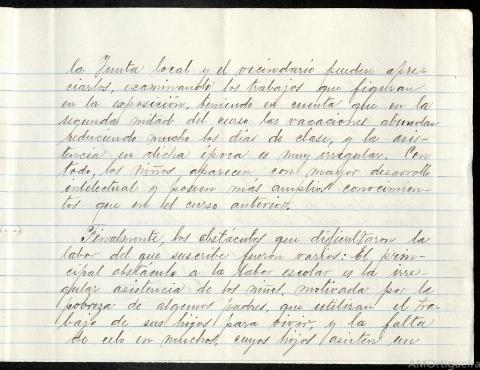 la Junta local y el vecindario pueden apre-
ciarlos, examinando los trabajos que figuran
en la exposición, teniendo en cuenta que en la
segunda mitad del curso las vacaciones abundan
reduciendo mucho los días de clase, y la asis-
tencia en dicha época es muy irregular. Con
todo, los niños aparecen con mayor desarrollo
intelectual y poseen más amplios conocimien-
tos que en el curso anterior.
Finalmente, los obstáculos que dificultaron la
labor del que suscribe fueron varios: El prin-
cipal obstáculo a la labor escolar es la irre-
gular asistencia de los niños, motivada por la
pobreza de algunos padres, que utilizan el tra-
bajo de sus hijos para vivir, y la falta
de celo en muchos, cuyos hijos asisten un
AMOrtigueira